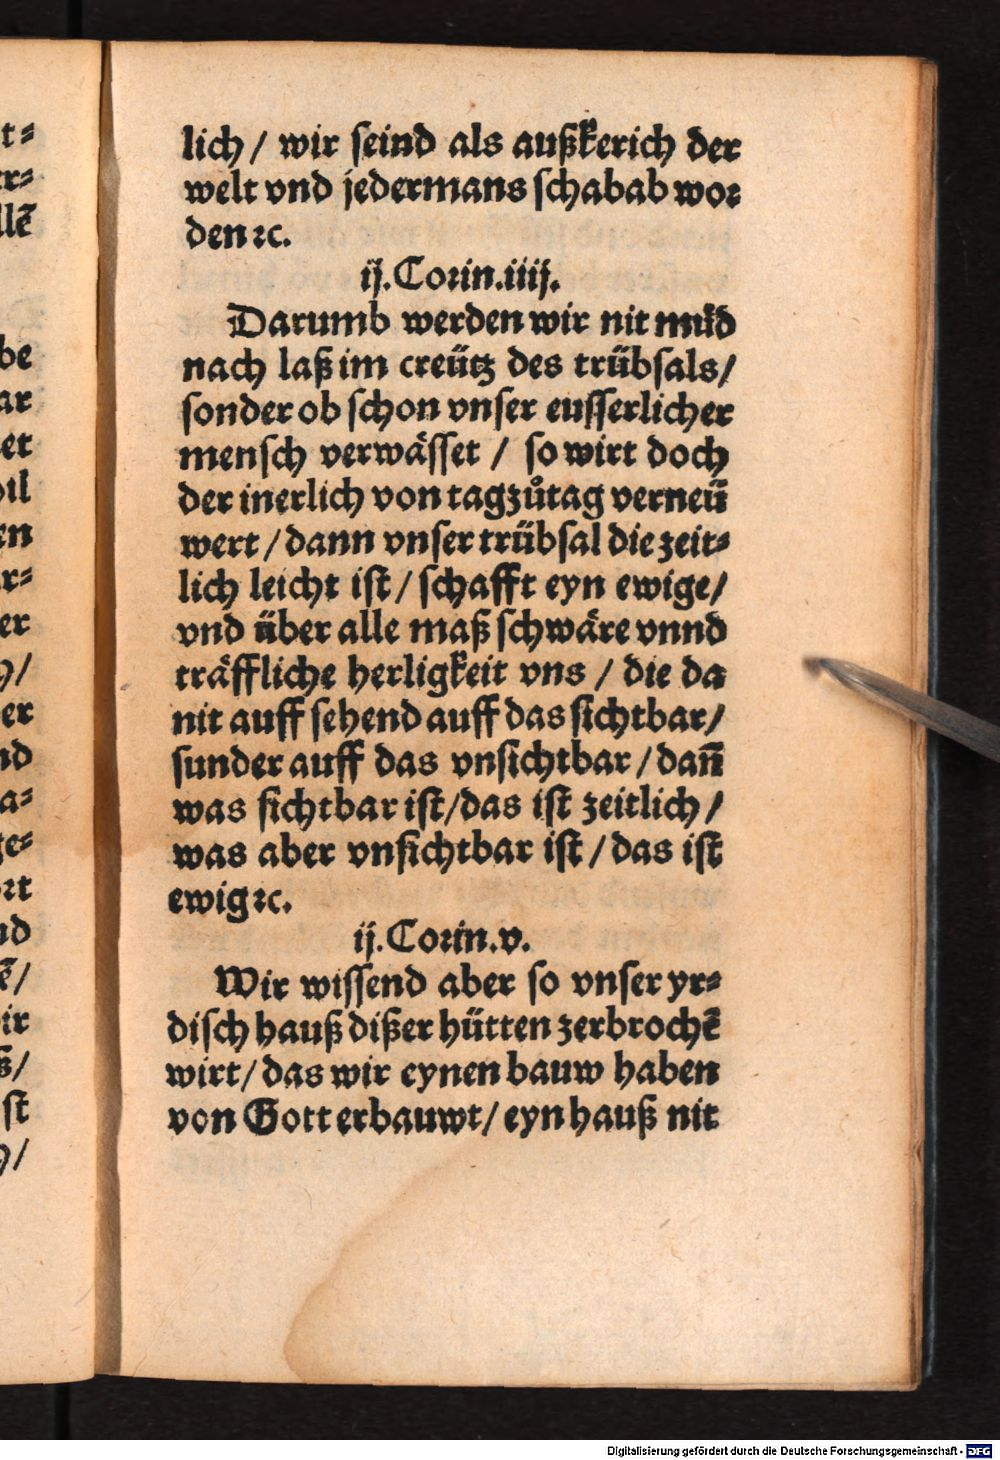 lich / wir seind als außkerich der
welt vnd jedermans schabab wor
den ꝛc.
ij. Corin. iiij.
Darumb werden wir nit müd
nach laß im creütz des trübsals /
sonder ob schon vnser eusserlicher
mensch verwässet / so wirt doch
der inerlich von tag zůtag verneü
wert / dann vnser trübsal die zeit⸗
lich leicht ist / schafft eyn ewige /
vnd über alle maß schwäre vnnd
träffliche herligkeit vns / die da
nit auff sehend auff das sichtbar /
sunder auff das vnsichtbar / dañ
was sichtbar ist / das ist zeitlich /
was aber vnsichtbar ist / das ist
ewig ꝛc.
ij. Corin. v.
Wir wissend aber so vnser yr⸗
disch hauß dißer hütten zerbrochẽ
wirt / das wir eynen bauw haben
von Gott erbauwt / eyn hauß nit
t⸗
er⸗
llẽ
be
ar
et
il
en
r⸗
er
/
er
nd
a⸗
ge⸗
rt
nd
ẽ /
ir
ß /
st
/
Digitalisierung gefördert durch die Deutsche Forschungsgemeinschaft - DFG